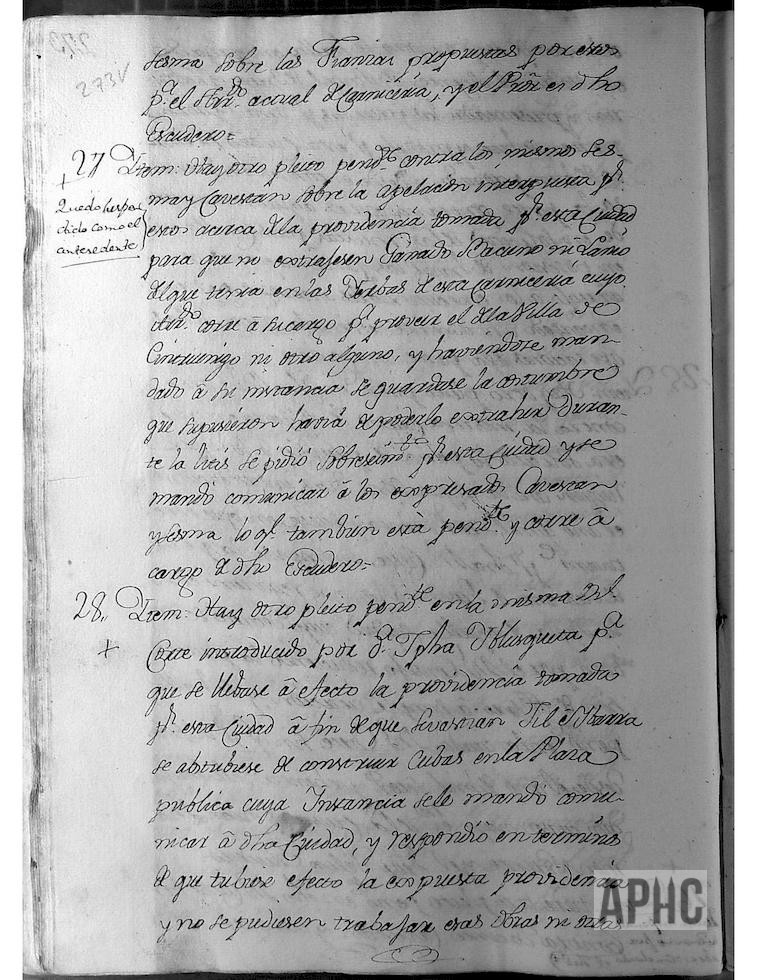 273v
sesma sobre las Fianzas propuestas por estos
pª el Arrdo actual de Carnicería, y el Pror es dho
Escudero=
27 Item: Hay otro pleito pendte contra los mismos Ses-
+
ma y Cavestan sobre la apelacion interpuesta pr
Quedo
dido como el
antesedente
estos acerca de la providencia tomada pr esta Ciudad
para que no extrajesen Ganado Bacuno ni Lanío
del que tenia en las Yerbas de esta Carnicería cuyo
Arrdo corre â su cargo pª proveir el de la Villa de
Cintruenigo ni otro alguno, y haviendose man-
dado â su instancia se guardase la costumbre
que supusieron havia de poderlo extraher Duran-
te la litis se pidió sobreseimto pr esta Ciudad y se
mandó comunicar â los expresados Cavestan
y sesma lo qe tambien está pendte y corre â
cargo de dho Escudero=
28,, Item: Hay otro pleito pendte en la misma Rl
+
Corte introducido por Dª Jpha de Blusqueta pª
que se llebase â efecto la providencia tomada
pr esta Ciudad â fin de que Sevastian Gil é Ybarra
se abtubiese de construir Cubas en la Plaza
publica cuya Instancia se le mandó comu-
nicar â dha Ciudad, y respondió en terminos
de que tubiese efecto la expuesta providencia
y no se pudiesen trabajar esas obras ni otras
APHC